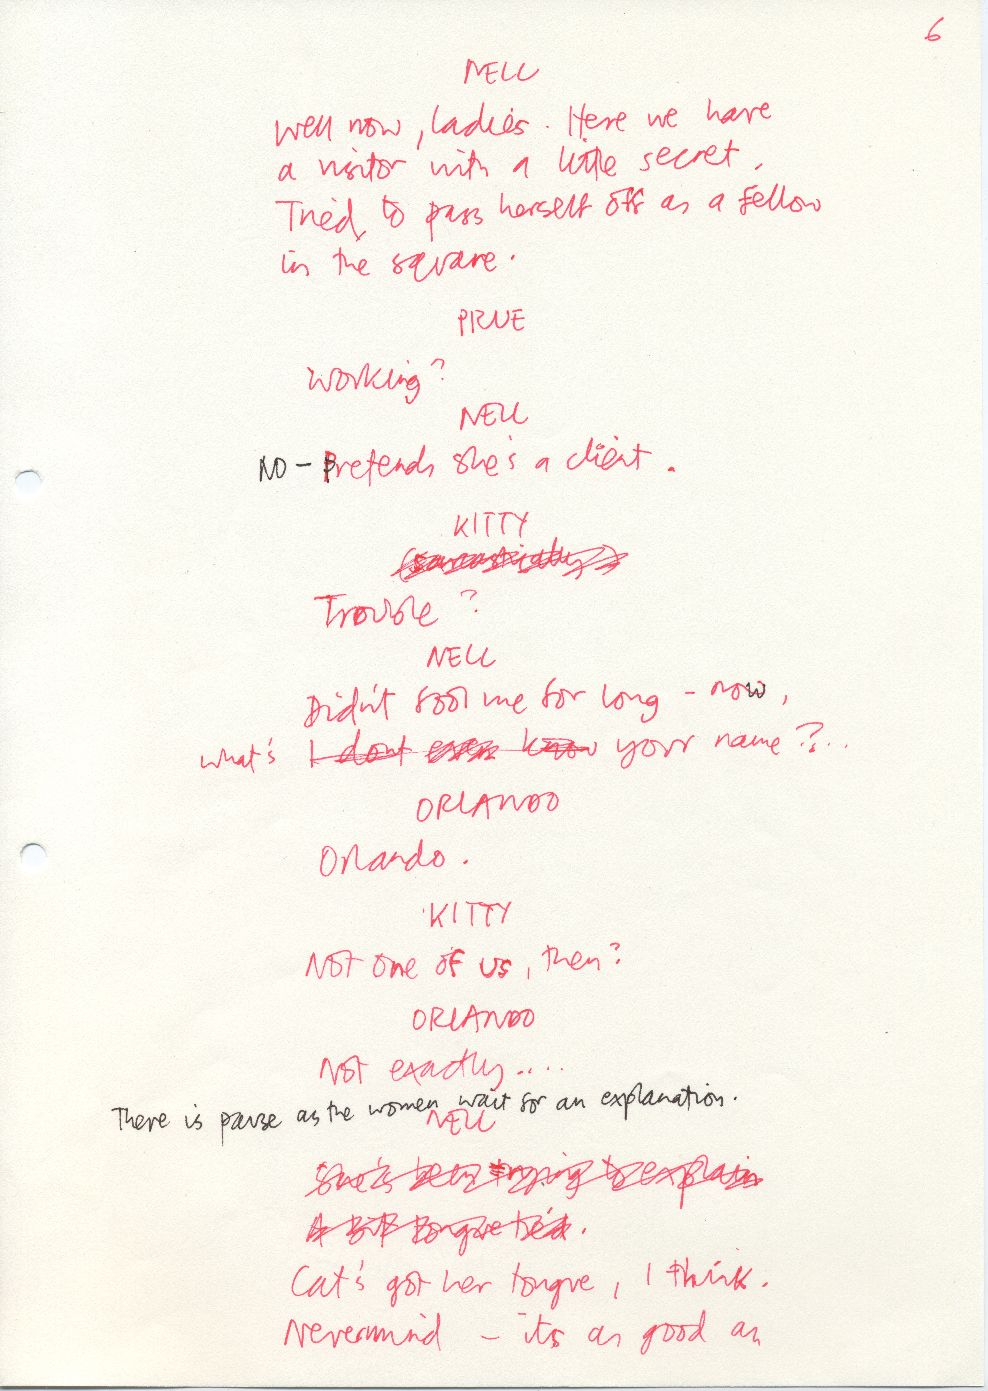 6
NELL
Well now, ladies. Here we have
a visitor with a little secret.
Tried to pass herself off as a fellow
in the square.
PRUE
Working?
NELL
NO - Pretends she's a client.
KITTY
(sarcastically)
Trouble?
NELL
Didn't fool me for long - now,
what's I dont even know your name?...
ORLANDO
Orlando.
KITTY
Not one of us, then?
ORLANDO
Not exactly....
There is pause as the women wait for an explanation.
NELL
She's been trying to explain
A bit tongue tied.
Cat's got her tongue, I think.
Nevermind - its as good an